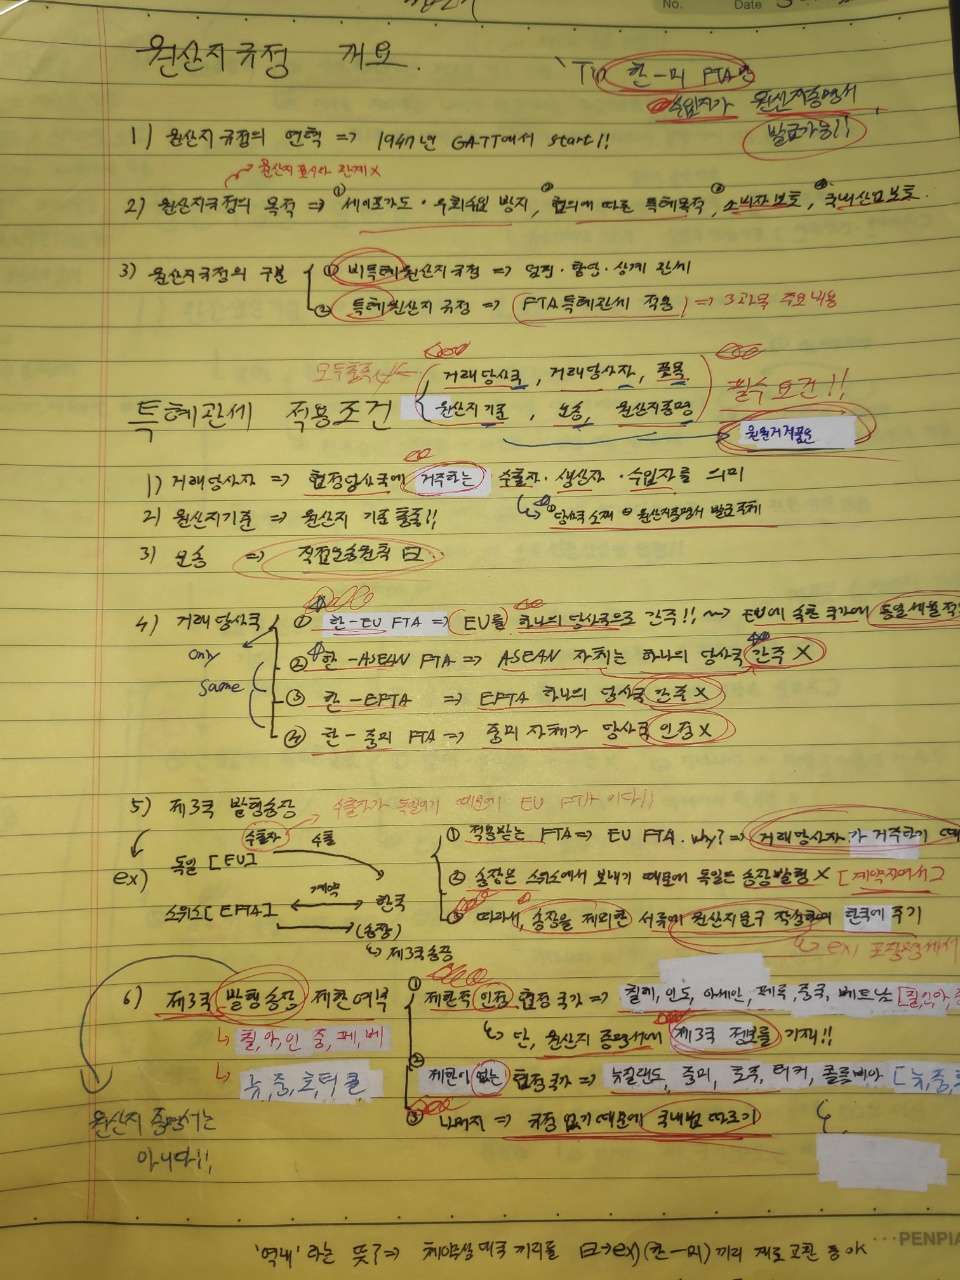 No. Date
원산지규정 개요.
Tip 한-미 FTA만
수입자가 원산지증명서
발급가능!!
1) 원산지규정의 연혁 => 1947년 GATT에서 start!!
원산지표시와 관계 X
2) 원산지규정의 목적 => ① 세이프가드·우회수입 방지, ② 협의에 따른 특혜목적, ③ 소비자보호, ④ 국내산업보호.
3) 원산지규정의 구분 ① 비특혜원산지규정 => 덤핑·함영·상계 관세
② 특혜원산지 규정 => (FTA특혜관세 적용) => 3과목 주요내용
모두충족 거래당사국, 거래당사자, 품목 필수요건!!
특혜관세 적용조건 원산지기준, 운송, 원산지증명
1) 거래당사자 => 협정당사국에 거주하는 수출자·생산자·수입자를 의미
2) 원산지기준 => 원산지 기준 충족!! ① 당사국 소재 ② 원산지증명서 발급주체
3) 운송 => 직접운송원칙
4) 거래당사국 ① 한-EU FTA => (EU를 하나의 당사국으로 간주!! ~> EU에 속한 국가에 동일세율적
only
② 한-ASEAN FTA => ASEAN 자체는 하나의 당사국 간주 X
same
③ 한-EFTA => EFTA 하나의 당사국 간주 X
④ 한-중미 FTA => 중미 자체가 당사국 인정 X
5) 제3국 발행송장 수출자가 독일이기 때문에 EU FTA 이다!!
수출자 수출
ex) 독일 [EU]
① 적용받는 FTA => EU FTA. why? => 거래당사자가 거주하기 때
계약
스위스[EFTA] 한국
② 송장은 스위스에서 보내기 때문에 독일은 송장발행 X [계약자여서]
(송장)
③ 따라서, 송장을 제외한 서류에 원산지문구 작성하여 한국에 주기
제3국송장
ex) 포장명세서
6) 제3국 발행송장 제한여부 ① 제한적 인정 협정 국가 => 칠레, 인도, 아세안, 페루, 중국, 베트남 [칠,인,아,
칠,아,인 중,페,베
단, 원산지 증명서에 제3국 정보를 기재!!
뉴,중,호,터 콜
② 제한이 없는 협정국가 => 뉴질랜드, 중미, 호주, 터키, 콜롬비아 [뉴,중,
③ 나머지 => 규정 없기때문에 국내법 따르기
원산지 증명서는
아니다!!
'역내'라는 뜻? => 체약상대국 끼리를 ex) (한-미)끼리 재료교환 등 ok
PENPIA